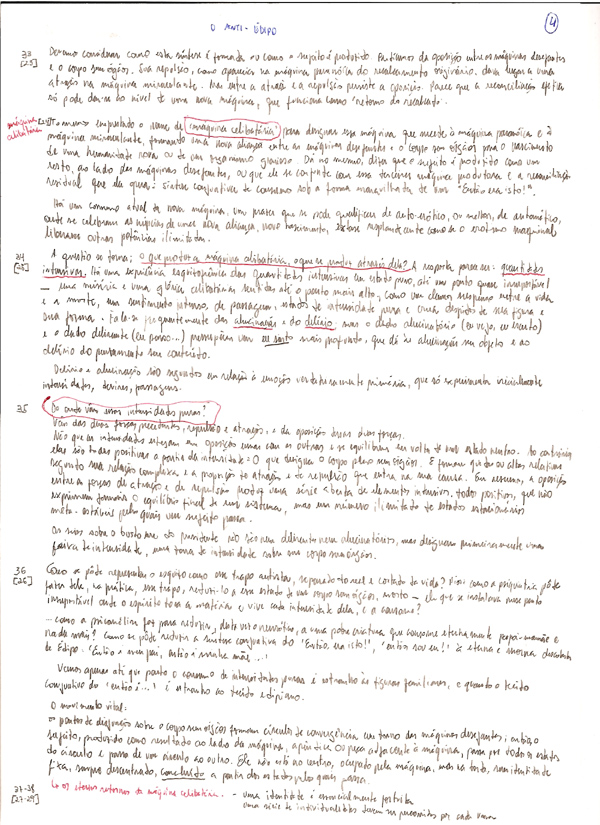 O ANTI-ÉDIPO
4
33
[23]
Devemos considerar como esta síntese é formada ou como o sujeito é produzido. Partíamos da oposição entre as máquinas desejantes
e o corpo sem órgãos. Sua repulsão, como aparecia na máquina paranóica do recalcamento originário, dava lugar a uma
atração na máquina miraculante. Mas entre a atração e a repulsão persiste a oposição. Parece que a reconciliação efetiva
só pode dar-se ao nível de uma nova máquina, que funciona como "retorno do recalcado".
máquina
celibatária
o nome de "máquina celibatária" para designar essa máquina que sucede à máquina paranóica e à
máquina miraculante, formando uma nova aliança entre as máquinas desejantes e o corpo sem órgãos para o nascimento
de uma humanidade nova ou de um organismo glorioso. Dá no mesmo, dizer que o sujeito é produzido como um
resto, ao lado das máquinas desejantes, ou que ele se confunde com essa terceira máquina produtora e a reconciliação
residual que ela opera: síntese conjuntiva de consumo sob a forma maravilhada de um "Então era isto!".
Há um consumo atual da nova máquina, um prazer que se pode qualificar de auto-erótico, ou melhor, de automático,
onde se celebram as núpcias de uma nova aliança, novo nascimento, êxtase resplandescente como se o erotismo maquinal
liberasse outras potências ilimitadas.
34
[25]
A questão se torna: o que produz a máquina celibatária, o que se produz através dela? A resposta parece ser: quantidades
intensivas. Há uma experiência esquizofrênica das quantidades intensivas em estado puro, até um ponto quase insuportável
— uma miséria e uma glória celibatárias sentidas até o ponto mais alto, como um clamor suspenso entre a vida
e a morte, um sentimento intenso de passagem, estados de intensidade pura e crua despidos de sua figura e
sua forma. Fala-se frequentemente das alucinações e do delírio; mas o dado alucinatório (eu vejo, eu escuto)
e o dado delirante (eu penso...) pressupõem um eu sinto mais profundo, que dê às alucinações seu objeto e ao
delírio do pensamento seu conteúdo.
Delírio e alucinação são segundos em relação à emoção verdadeiramente primária, que só experimenta inicialmente
intensidades, devires, passagens.
35
De onde vêm essas intensidades puras?
Vêm das duas forças precedentes, repulsão e atração, e da oposição dessas duas forças.
Não que as intensidades estejam em oposição umas com as outras e se equilibrem em volta de um estado neutro. Ao contrário,
elas são todas positivas a partir da intensidade = 0 que designa o corpo pleno sem órgãos. E formam quedas ou altas relativas
segundo sua relação complexa e a proporção de atração e de repulsão que entra na sua causa. Em resumo, a oposição
entre as forças de atração e de repulsão produz uma série aberta de elementos intensivos, todos positivos, que não
exprimem jamais o equilíbrio final de um sistema, mas um número ilimitado de estados estacionários
meta-estáveis pelos quais um sujeito passa.
Os seios sobre o busto nu do presidente não são nem delirantes nem alucinatórios, mas designam primeiramente uma
faixa de intensidade, uma zona de intensidade sobre seu corpo sem órgãos.
36
[26]
Como se pôde representar o esquizo como esse trapo autista, separado do real e cortado da vida? Pior: como a psiquiatria pôde
fazer dele, na prática, esse trapo, reduzi-lo a esse estado de um corpo sem órgãos, morto — ele que se instalava nesse ponto
insuportável onde o espírito toca a matéria e vive cada intensidade dela, e a consome?
... como a psicanálise faz para reduzir, desta vez o neurótico, a uma pobre criatura que consome eternamente papai-mamãe e
nada mais? Como se pôde reduzir a síntese conjuntiva do "Então, era isto!", "então sou eu!" à eterna e morna descoberta
de Édipo, "Então é meu pai, então é minha mãe..."!
Vemos apenas até que ponto o consumo de intensidades puras é estranho às figuras familiares, e quanto o tecido
conjuntivo do "então é..." é estranho ao tecido edipiano.
O movimento vital:
os pontos de disjunção sobre o corpo sem órgãos formam círculos de convergência em torno das máquinas desejantes; então, o
sujeito, produzido como resultado ao lado da máquina, apêndice ou peça adjacente à máquina, passa por todos os estados
do círculo e passa de um círculo ao outro. Ele não está no centro, ocupado pela máquina, mas na borda, sem identidade
fixa, sempre descentrado, concluído a partir dos estados pelos quais passa.
37-38
[27-29]
↳ os eternos retornos da máquina celibatária.
- uma identidade é essencialmente fortuita
uma série de individualidades devem ser percorridas por cada uma